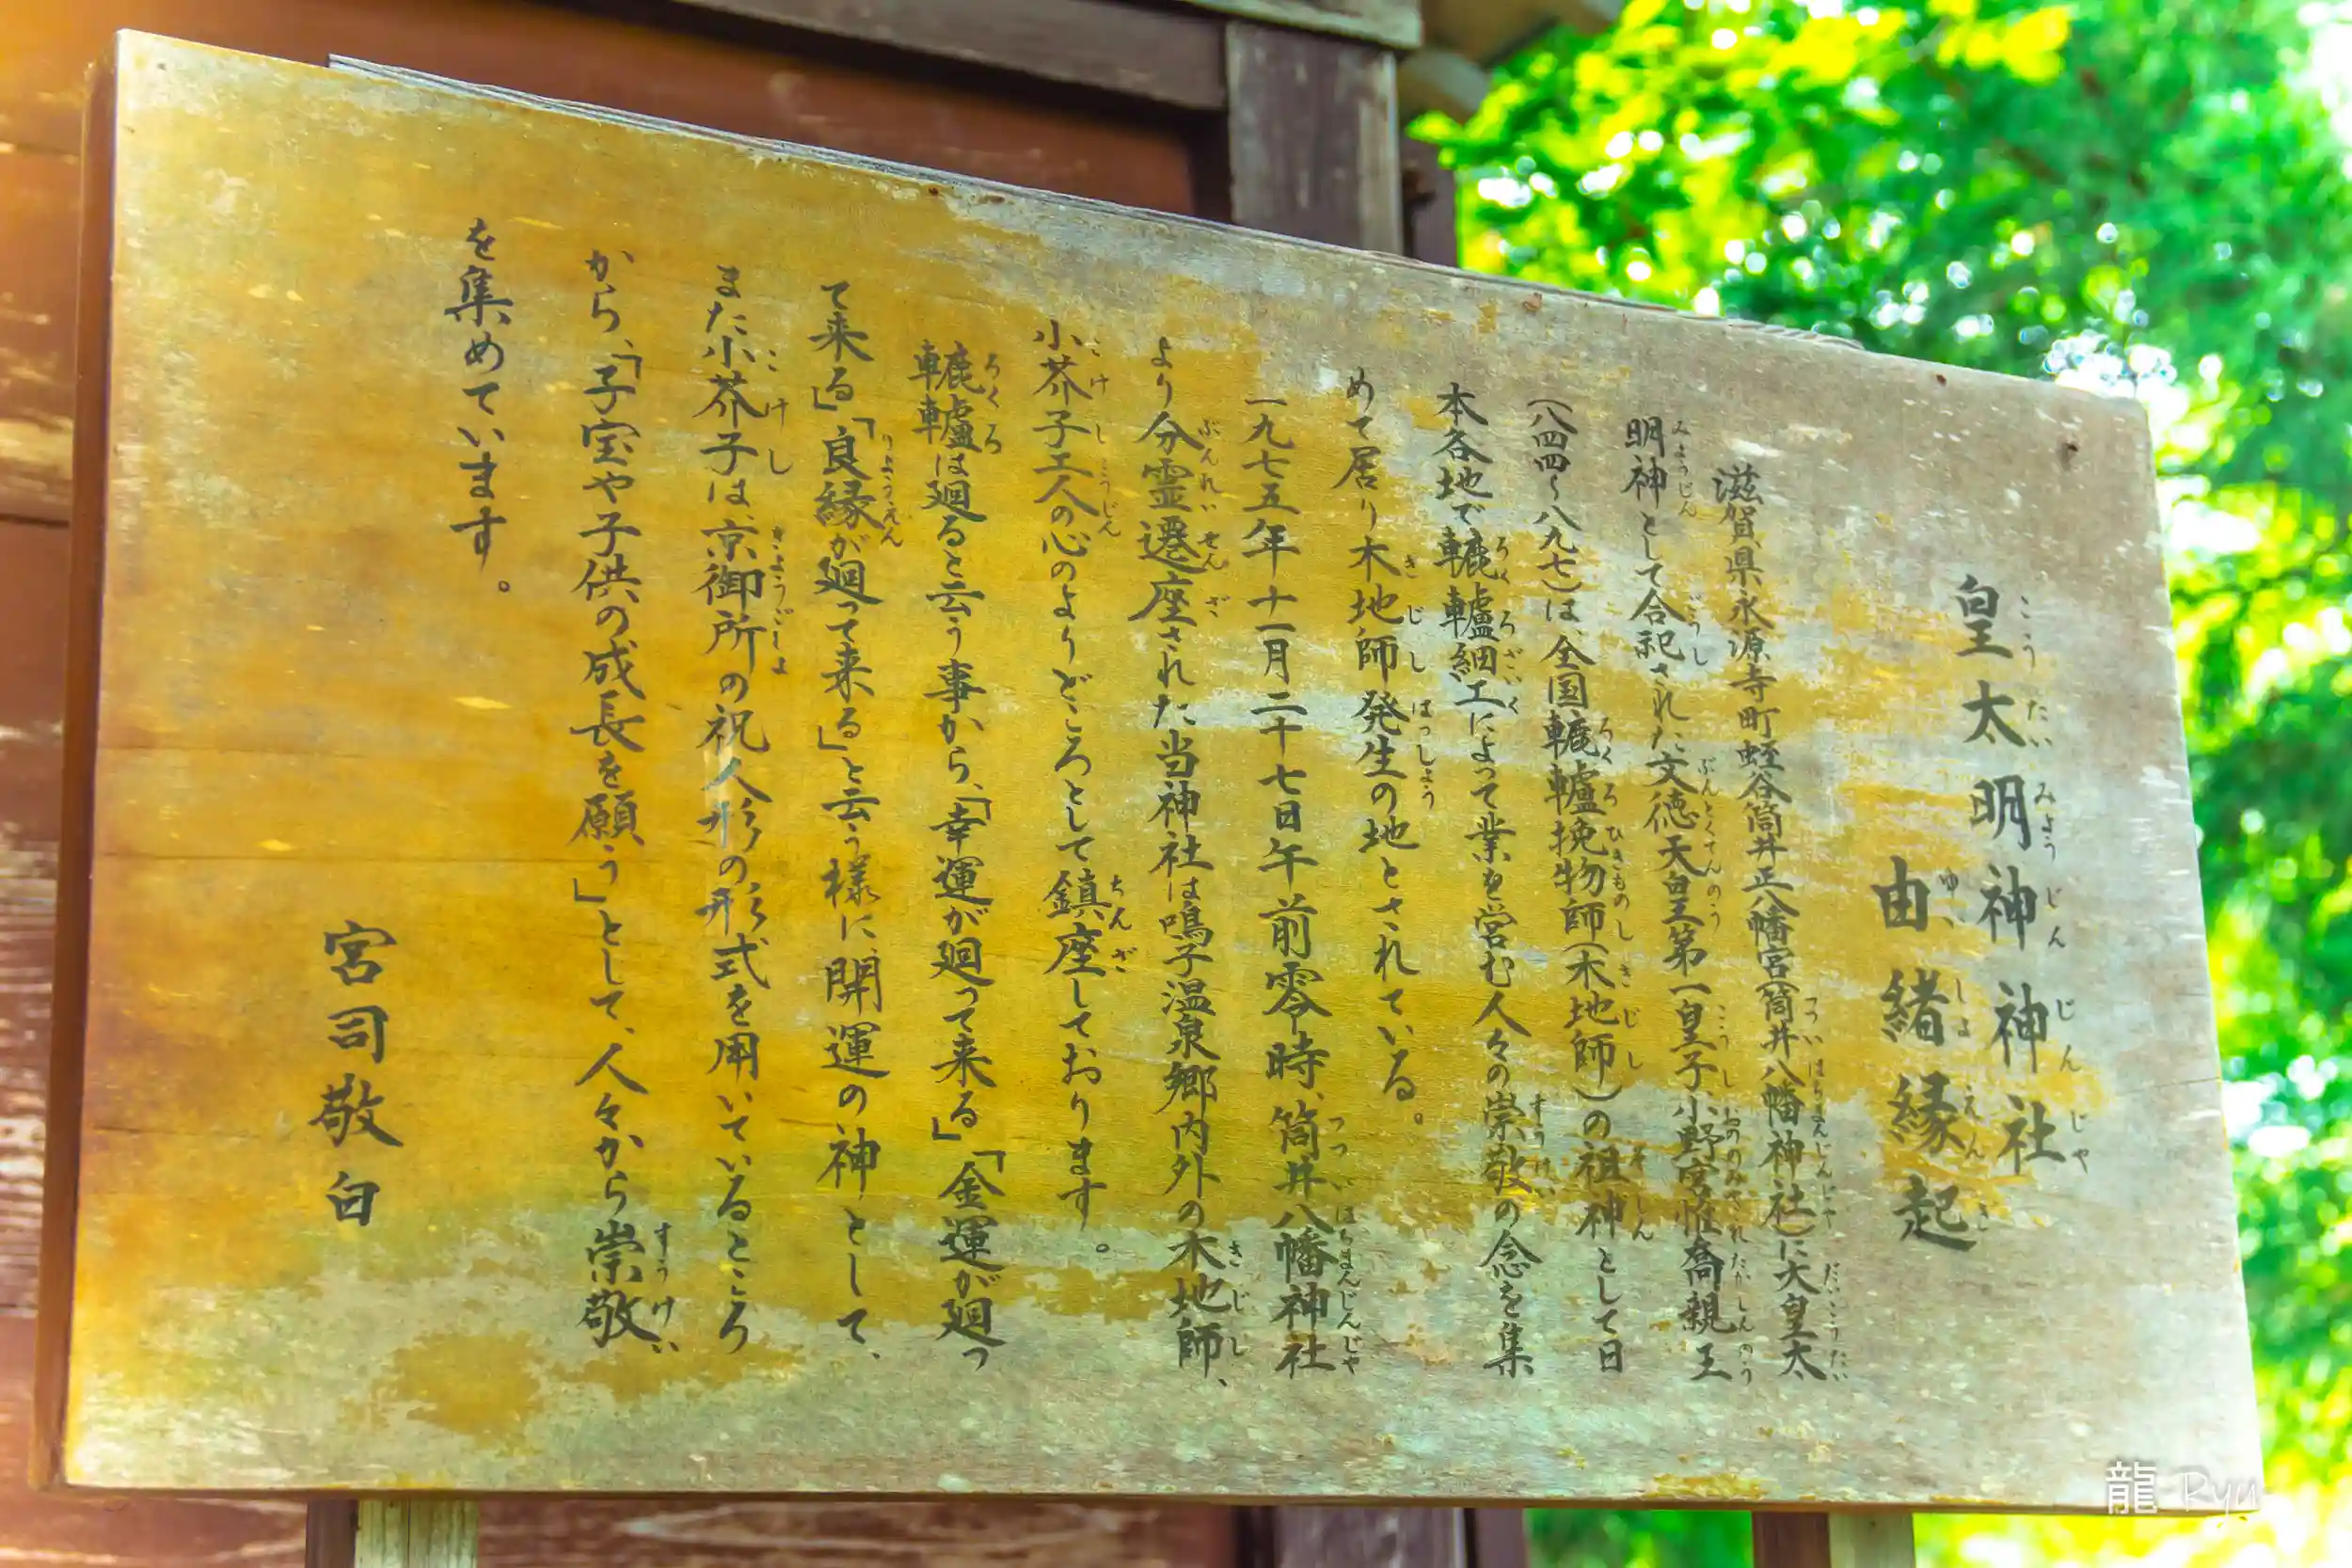 皇太明神神社
由緒縁起
滋賀県永源寺町蛭谷筒井正八幡宮(筒井八幡神社)に大皇太
明神として合祀された文徳天皇第一皇子、小野宮惟喬親王
(八四四～八九七)は、全国轆轤挽物師(木地師)の祖神として日
本各地で轆轤細工によって業を営む人々の崇敬の念を集
めて居り木地師発生の地とされている。
一九七五年十一月二十七日午前零時、筒井八幡神社
より分霊遷座された当神社は鳴子温泉郷内外の木地師、
小芥子工人の心のよりどころとして鎮座しております。
轆轤は廻ると云う事から、「幸運が廻って来る」「金運が廻っ
て来る」「良縁が廻って来る」と云う様に、開運の神として、
また小芥子は、京御所の祝人形の形式を用いているところ
から、「子宝や子供の成長を願う」として、人々から崇敬
を集めています。
宮司敬白
龍 Ryu